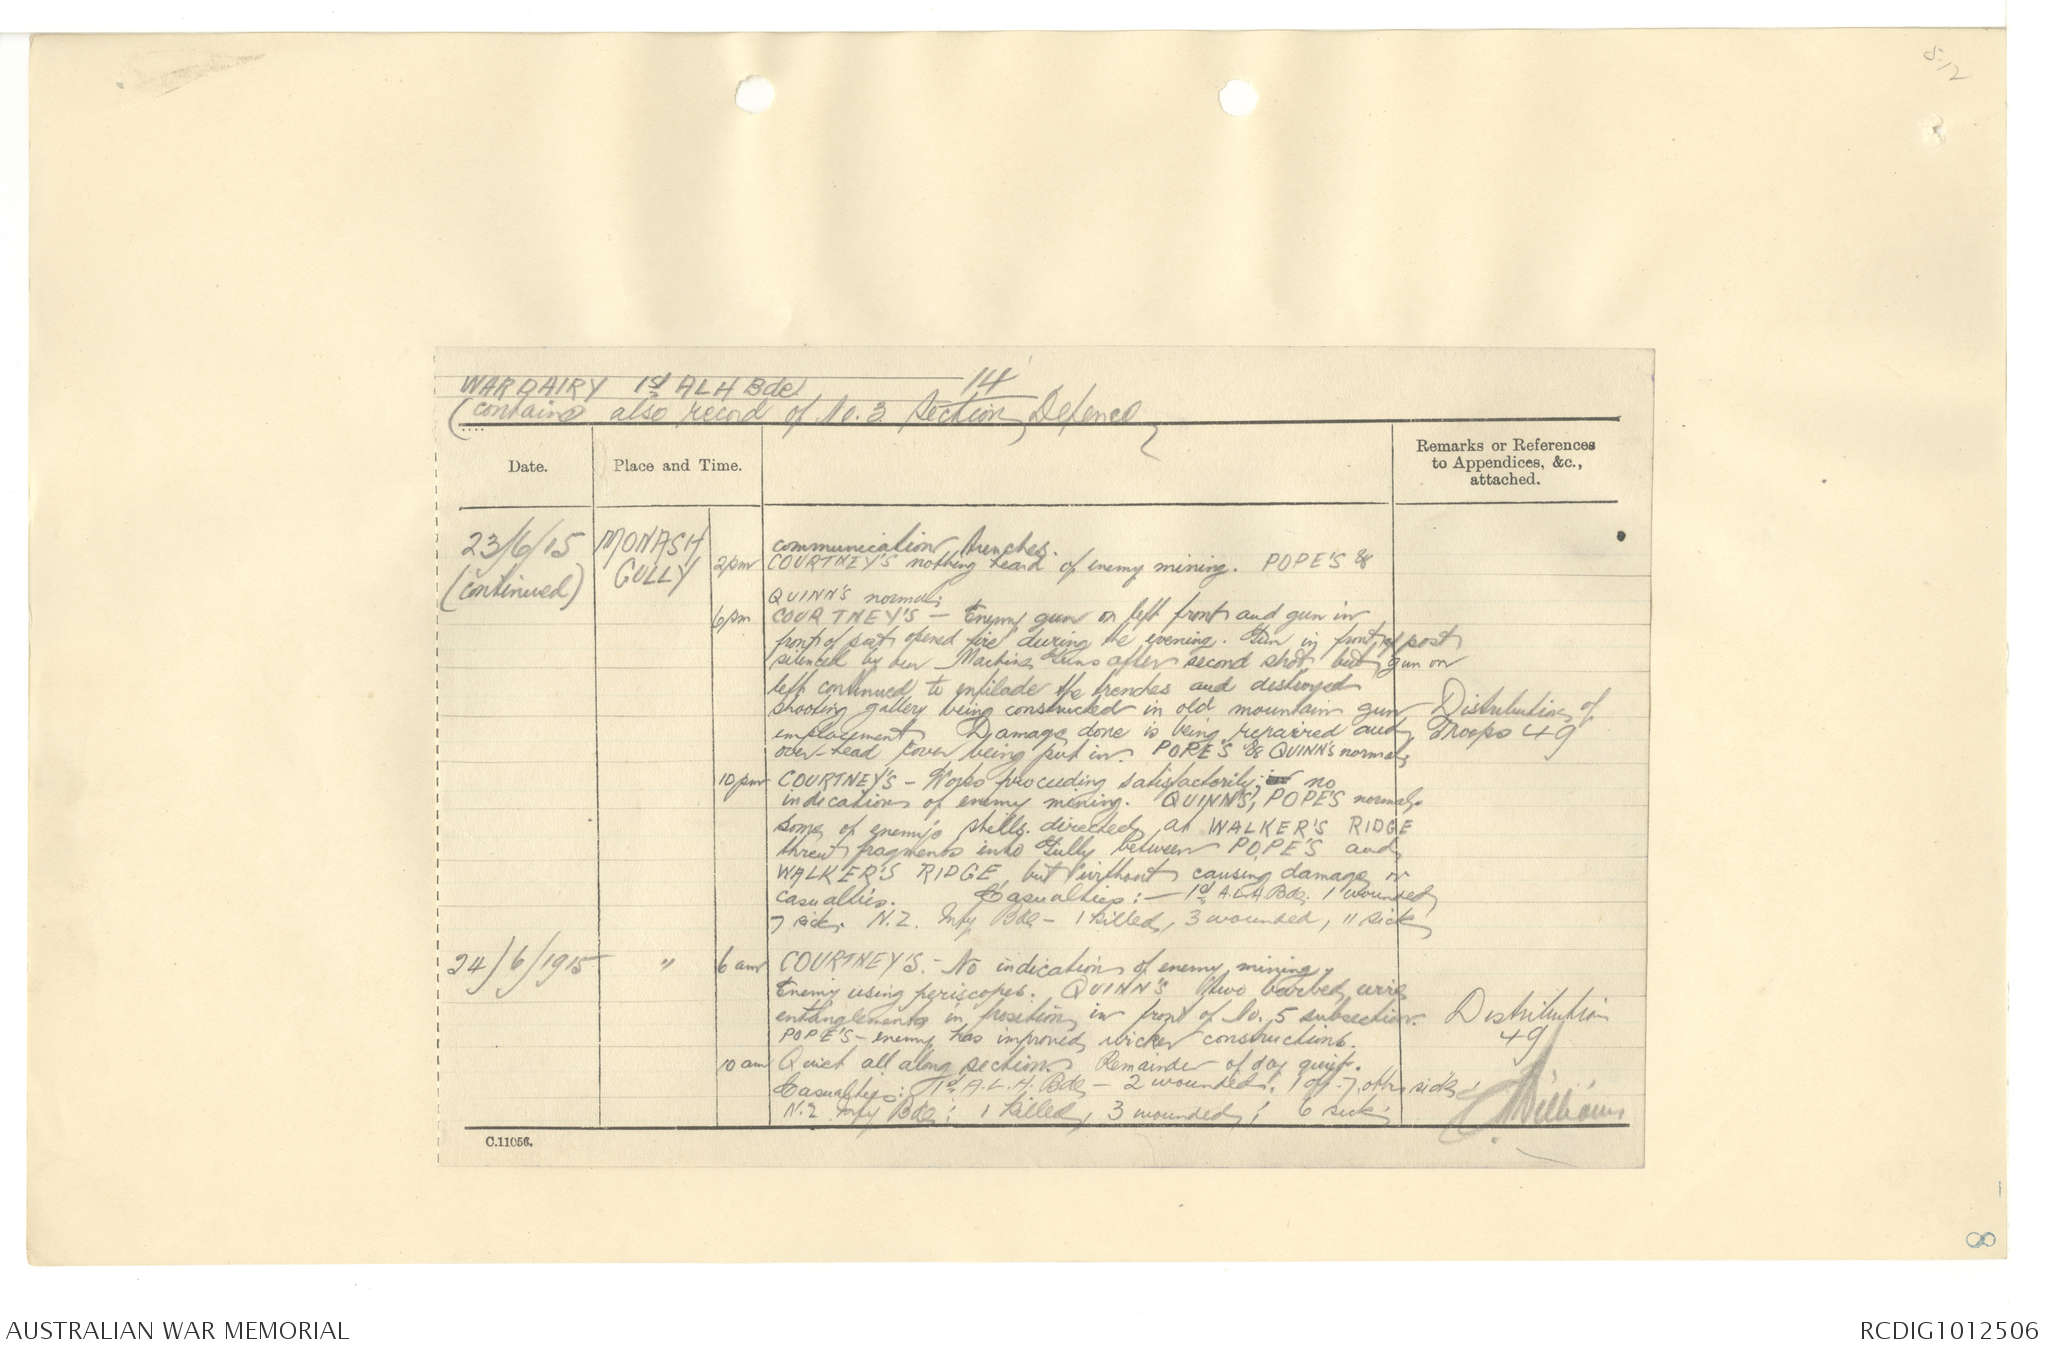 8.12
WAR DAIRY 1st ALH Bde 14
(contains also record of No. 3 Section, Defence)
Date.
Place and Time.
Remarks or References
to Appendices, &c.,
attached.
23/6/15
(continued)
MONASH
GULLY
communication trenches.
2pm COURTNEY'S nothing heard of enemy mining. POPE'S &
QUINN'S normal;
6pm COURTNEY'S - Enemy gun on left front and gun in
front of post opened fire during the evening. Gun in front of post
silenced by our Machine Guns after second shot but gun on
left continued to enfilade the trenches and destroyed
shooting gallery being constructed in old mountain gun
emplacement. Damage done is being repaired and
over-head cover being put in. POPE'S & QUINN'S normal.
Distribution of
Troops 49
10pm COURTNEY'S - Works proceeding satisfactorily; no
indications of enemy mining. QUINN'S, POPE'S normal.
Some of enemy's shells directed at WALKER'S RIDGE
threw fragments into Gully between POPE'S and
WALKER'S RIDGE but without causing damage or
casualties. Casualties: - 1st A.L.H Bde. 1 wounded,
7 sick. N.Z. Infy Bde - 1 killed, 3 wounded, 11 sick.
24/6/1915 " 6 am COURTNEY'S. - No indication of enemy mining.
Enemy using periscopes. QUINN'S Two barbed wire
entanglements in position in front of No. 5 subsection.
POPE'S - enemy has improved wicker constructions.
Distribution
49
10 am Quiet all along section. Remainder of day quiet.
Casualties: 1st A.L.H. Bde - 2 wounded. 1 off. 7 othrs sick.
N.Z Infy Bde: 1 killed, 3 wounded; 6 sick.
Williams
C.11056.
8
AUSTRALIAN WAR MEMORIAL
RCDIG1012506